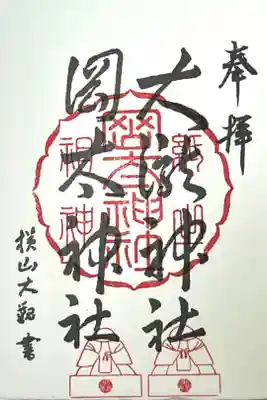 奉拝
大瀧神社
岡太神社
祖神
横山大観書